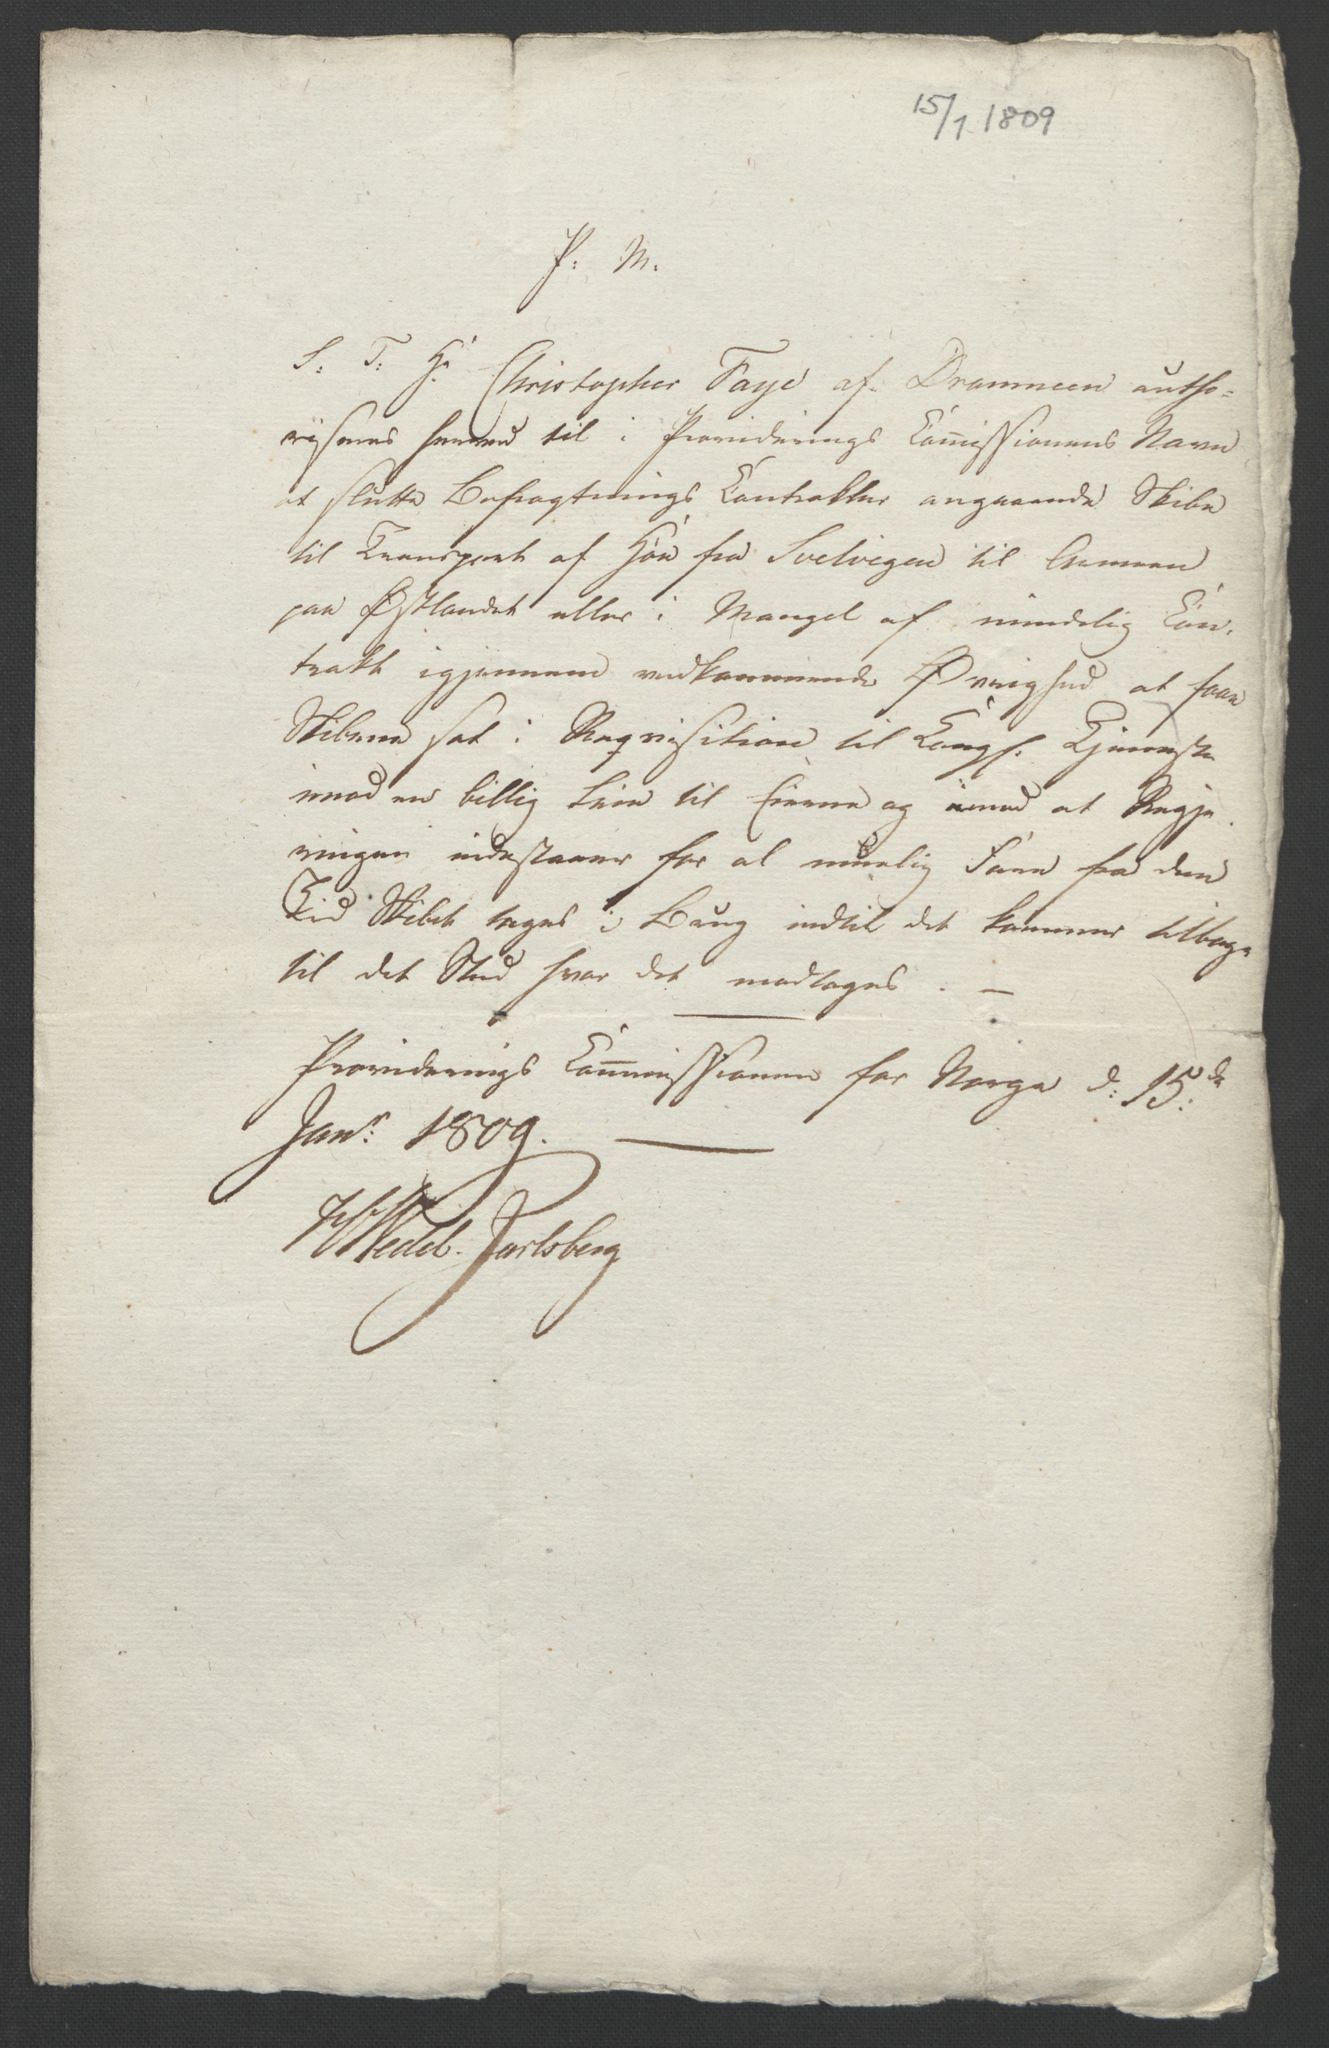 15/1 1809
P: M.
S. T. Hr. Christopher Faye af Drammen autho-
riseres herved til i Provideerings Commissionens Navn
at slutte Befragtnings Contrakter angaaende Skibe
til Transport af Høe fra Svelvigen til Armeen
paa Østlandet eller i Mangel af mindelig Con-
trakt igjennem vedkommende Øvrighed at faae
Skibene sat i Reqvisition til Kongl. Tjeneste
imod en billig Leie til Eierne og imod at Regje-
ringen indestaaer for al muelig Fare fra den
Tid Skibet tages i Brug indtil det kommer tilbage
til det Sted hvor det modtages. —
Provideerings Commissionen for Norge d: 15de
Janr: 1809.
HWedel-Jarlsberg